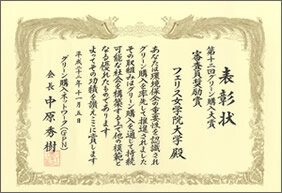 表彰状
第十二回グリーン購入大賞
審査員奨励賞
フェリス女学院大学 殿
あなたは環境保全の重要性を認識され
グリーン購入を率先して推進されました
その取組みはグリーン購入を通じて持続
可能な社会を構築する上で他の模範と
なる優れたものであります
よってその功績を讃えここに賞します
平成二十二年十一月五日
グリーン購入ネットワーク(GPN)
会長 中原秀樹